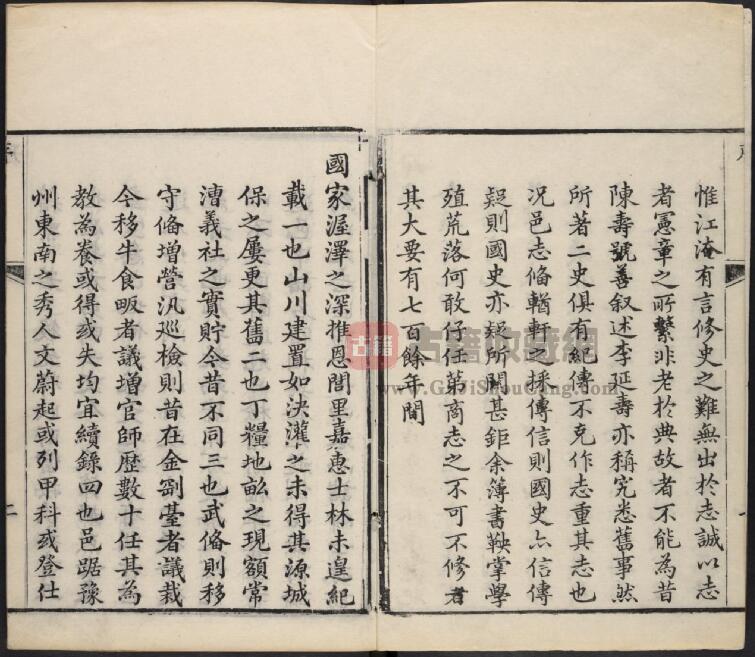 惟江淹有言修史之難無出於志誠以志
者憲章之所繫非老於典故者不能為昔
陳壽號善叙述李延壽亦稱究悉舊事然
所著二史俱有紀傳不克作志重其志也
况邑志俻輶軒之採傳信則國史亦信傳
疑則國史亦疑所關甚鉅余簿書鞅掌學
殖荒落何敢仔任第商志之不可不修者
其大要有七百餘年間
國家渥澤之深推恩閭里嘉惠士林未遑紀
載一也山川建置如決灌之未得其源城
保之屢更其舊二也丁糧地畝之現額常
漕義社之實貯今昔不同三也武俻則移
守俻增營汛巡檢則昔在金剛臺者議裁
今移牛食畈者議增官師歷數十任其為
教為養或得或失均宜續錄四也邑踞豫
州東南之秀人文蔚起或列甲科或登仕
二
古籍收藏網
www.GuJiShouCang.com